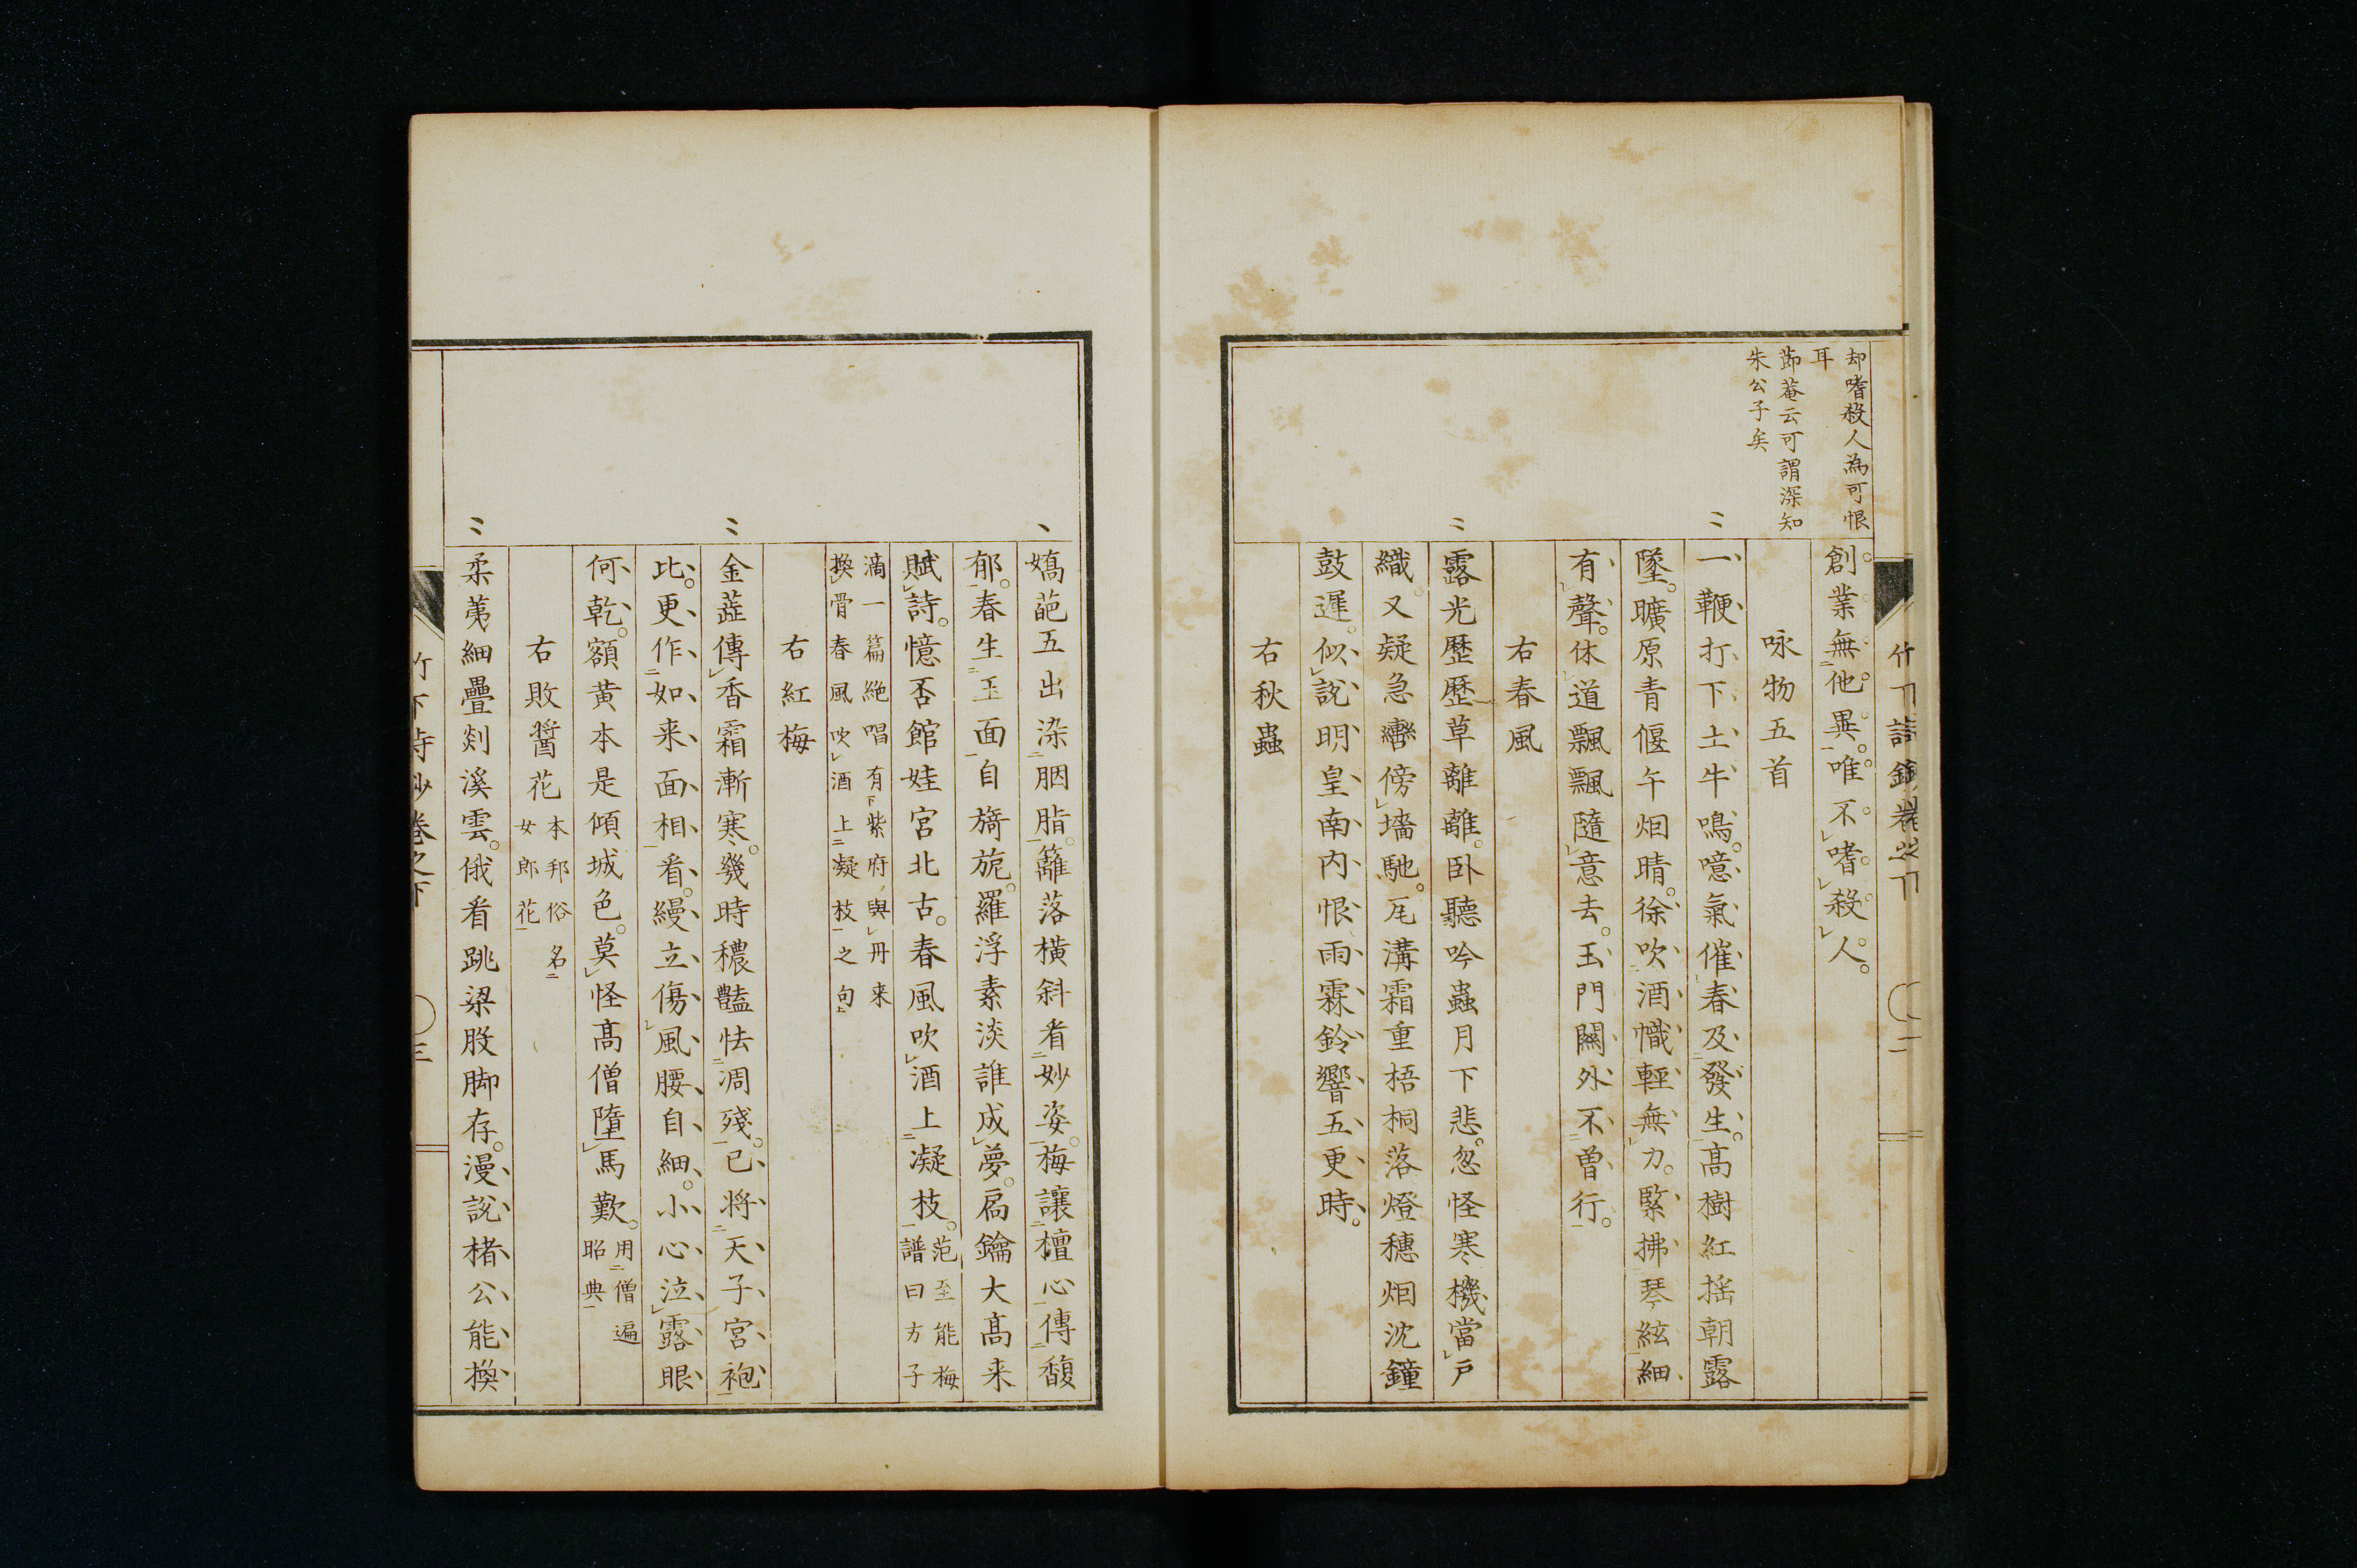 却嗜殺人為可恨
耳
節菴云可謂深知
朱公子矣
創業無他異唯不嗜殺人
咏物五首
一鞭打下土牛鳴噫氣催春及發生髙樹紅揺朝露
墜曠原青偃午烟晴徐吹酒幟輕無力緊拂琴絃細
有聲休道飄飄隨意去玉門關外不曽行
右春風
露光歴歴草離離卧聽吟蟲月下悲忽怪寒機當戸
織又疑急轡傍墻馳瓦溝霜重梧桐落燈穗烟沈鐘
鼓遲似説明皇南内恨雨霖鈴響五更時
右秋蟲
竹下詩鈔卷之下
二
嬌葩五出染胭脂籬落横斜看妙姿梅讓檀心傳馥
郁春生玉面自旖旎羅浮素淡誰成夢扃鑰大髙来
賦詩憶否館娃宮北古春風吹酒上凝枝
范至能梅
譜曰方子
滴一篇絶唱有紫府與丹来
換骨春風吹酒上凝枝之句
右紅梅
金蕋傳香霜漸寒幾時穠豔怯凋殘已將天子宮袍
比更作如来面相看縵立傷風腰自細小心泣露眼
何乾額黄本是傾城色莫怪髙僧墮馬歎
用僧遍
昭典
右敗醬花
本邦俗名
女郎花
柔荑細疊剡溪雲俄看跳梁股脚存漫説楮公能換
竹下詩鈔卷之下
三